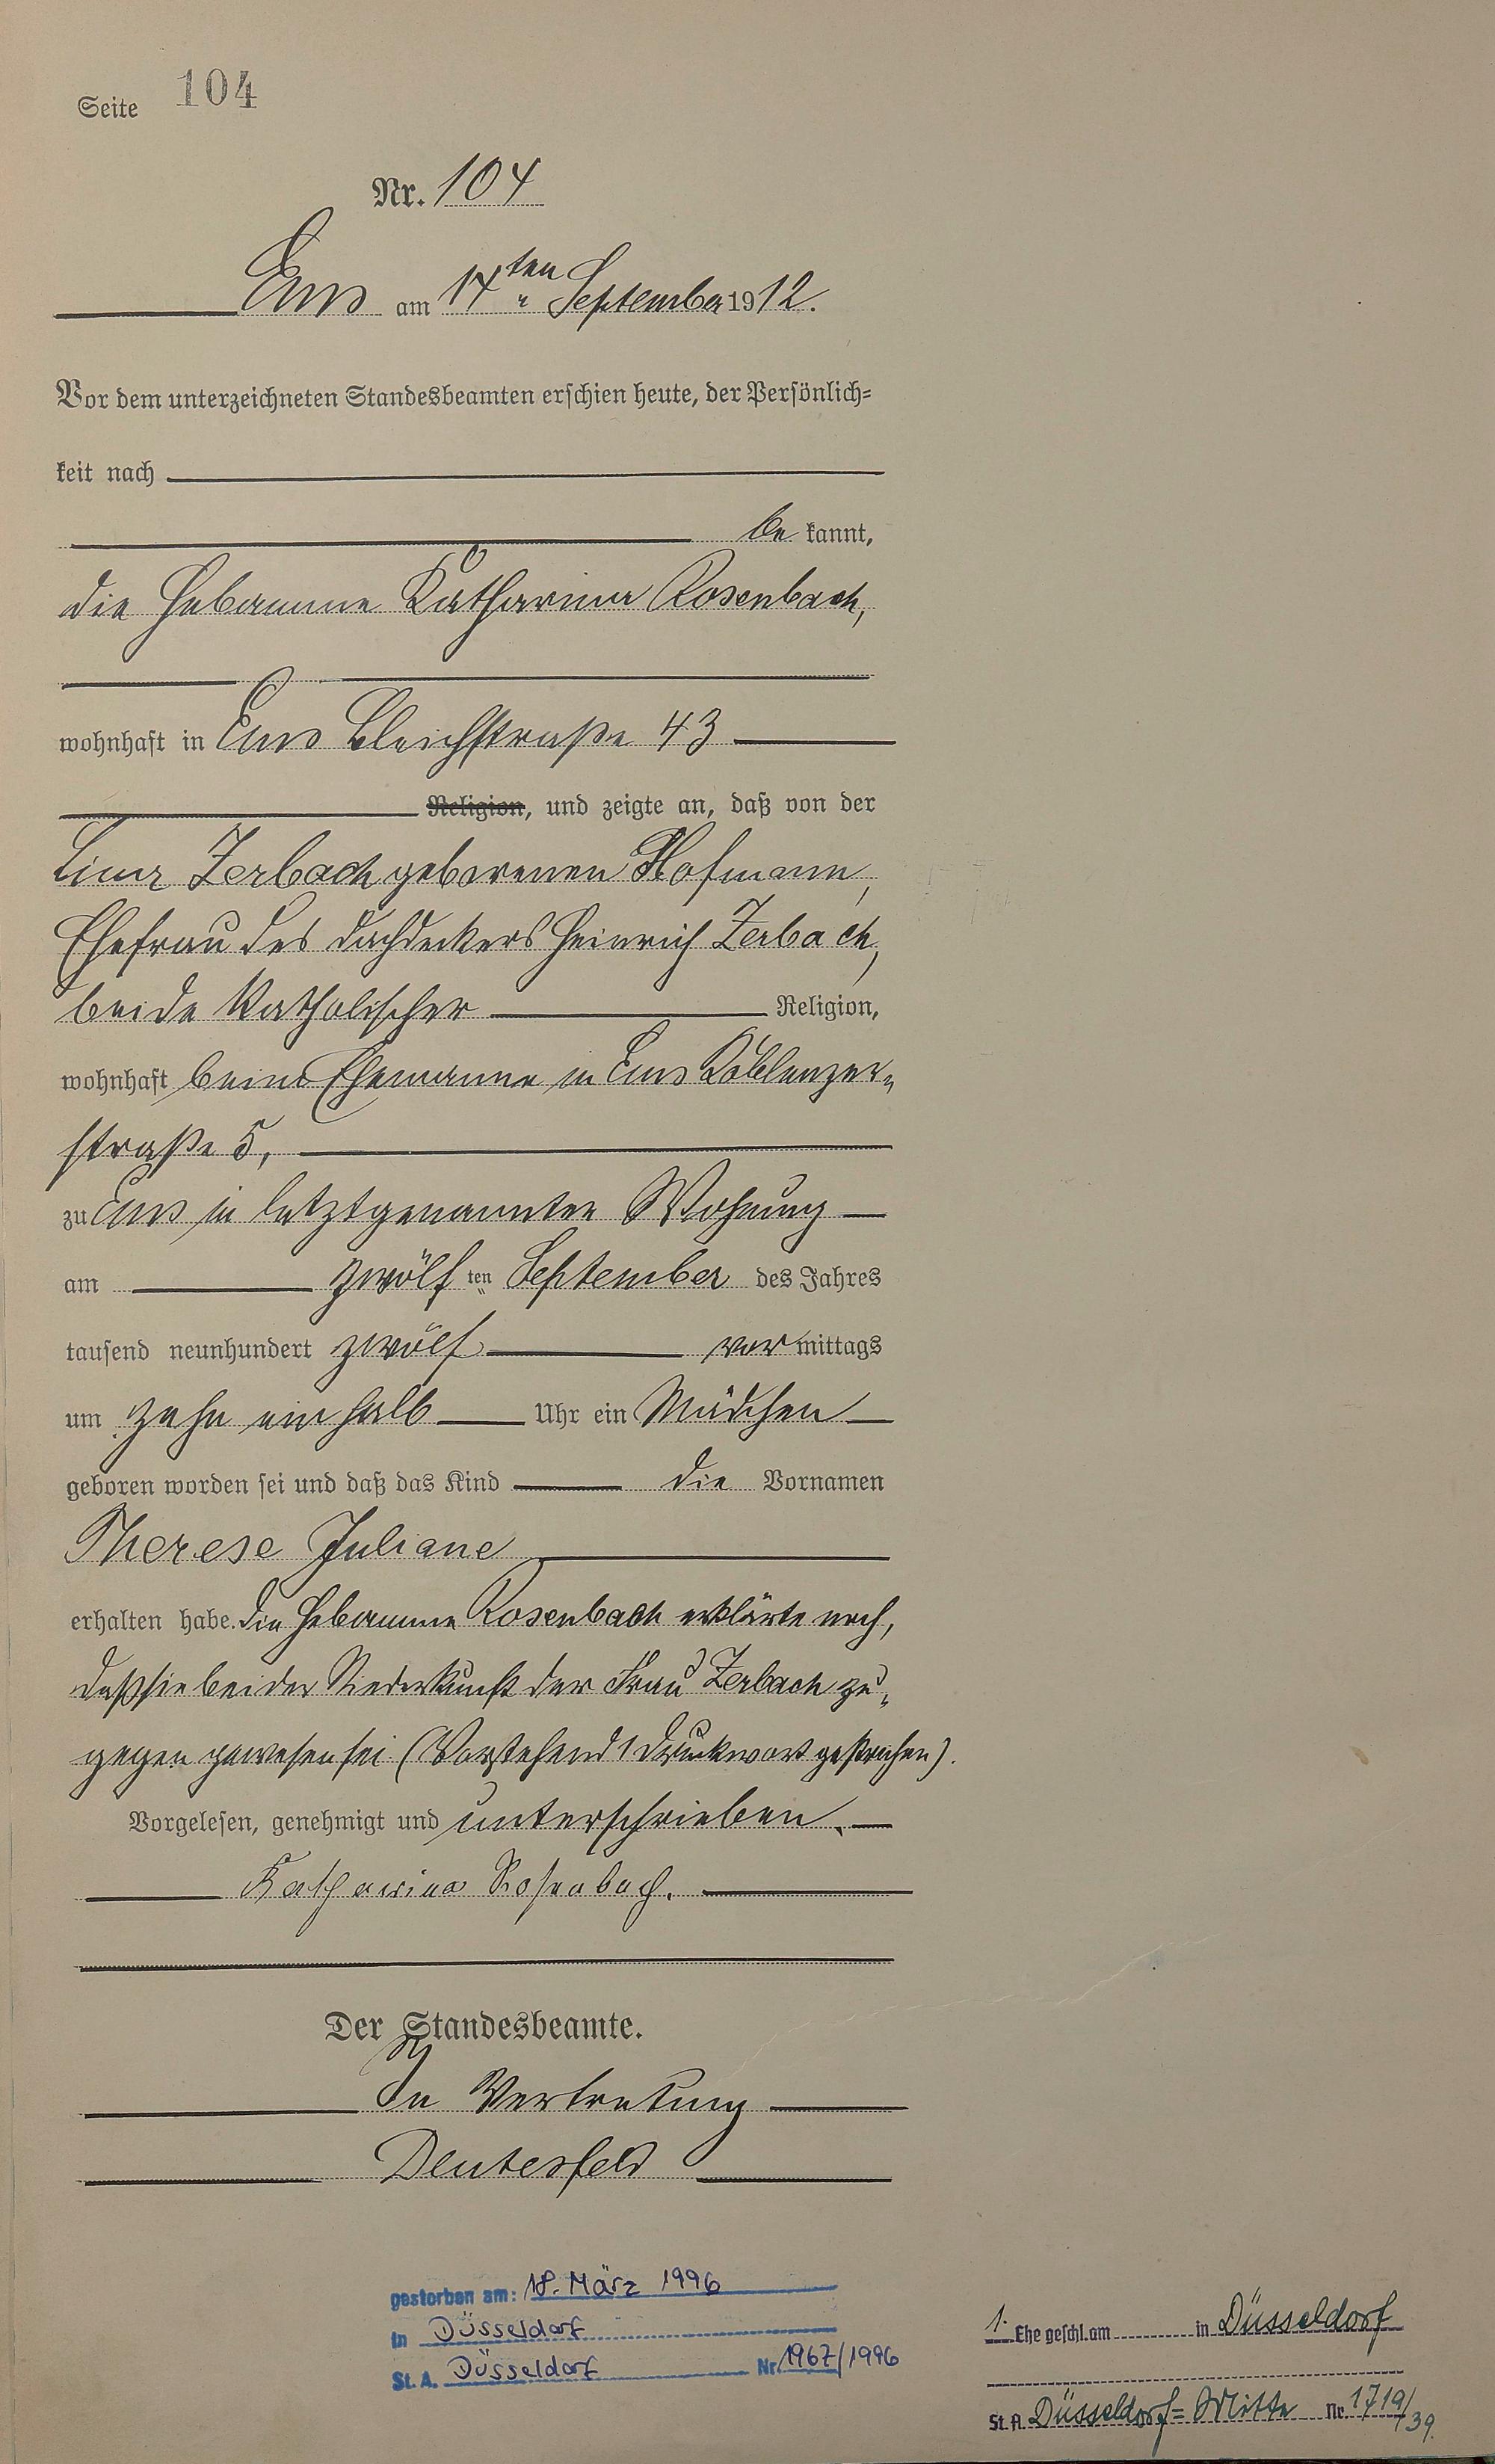 Seite 104
Nr. 104
Ems am 14ten September 1912.
Vor dem unterzeichneten Standesbeamten erschien heute, der Persönlich=
keit nach
be kannt,
die Hebamme Katharina Rosenbach,
wohnhaft in Ems Bleichstraße 43
Religion, und zeigte an, daß von der
Lina Zerbach geborenen Hofmann,
Ehefrau des Dachdeckers Heinrich Zerbach,
beide katholischer Religion,
wohnhaft beim Ehemanne in Ems Coblenzer„
straße 5,
zu Ems in letztgenannter Wohnung
am zwölf ten September des Jahres
tausend neunhundert zwölf vor mittags
um zehn ein halb Uhr ein Mädchen
geboren worden sei und daß das Kind die Vornamen
Therese Juliane
erhalten habe. Die Hebamme Rosenbach erklärte noch,
daß sie bei der Niederkunft der Frau Zerbach zu„
gegen gewesen sei (Vorstehend 1 Druckwort gestrichen).
Vorgelesen, genehmigt und unterschrieben.
Katharina Rosenbach.
Der Standesbeamte.
In Vertretung
gestorben am: 18. März 1996
in Düsseldorf
St. A. Düsseldorf Nr 1967/1996
1. Ehe geschl. am in Düsseldorf
St. A. Düsseldorf=Mitte Nr. 1719/39.